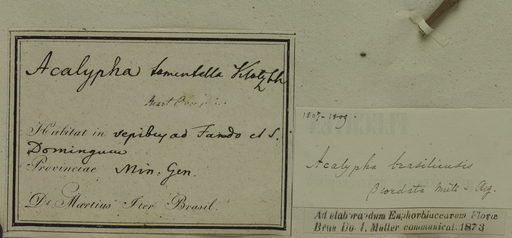 Acalypha tomentella Klotzsch
Habitat in sepibus ad Fanado et S.
Domingum
Provinciae Min. Gen.
Dr Martius Iter Brasil.
Acalypha brasiliensis
β cordata Müll. Arg.
Ad elaborandum Euphorbiacearum Florae
Bras Do I. Müller communicat. 1873